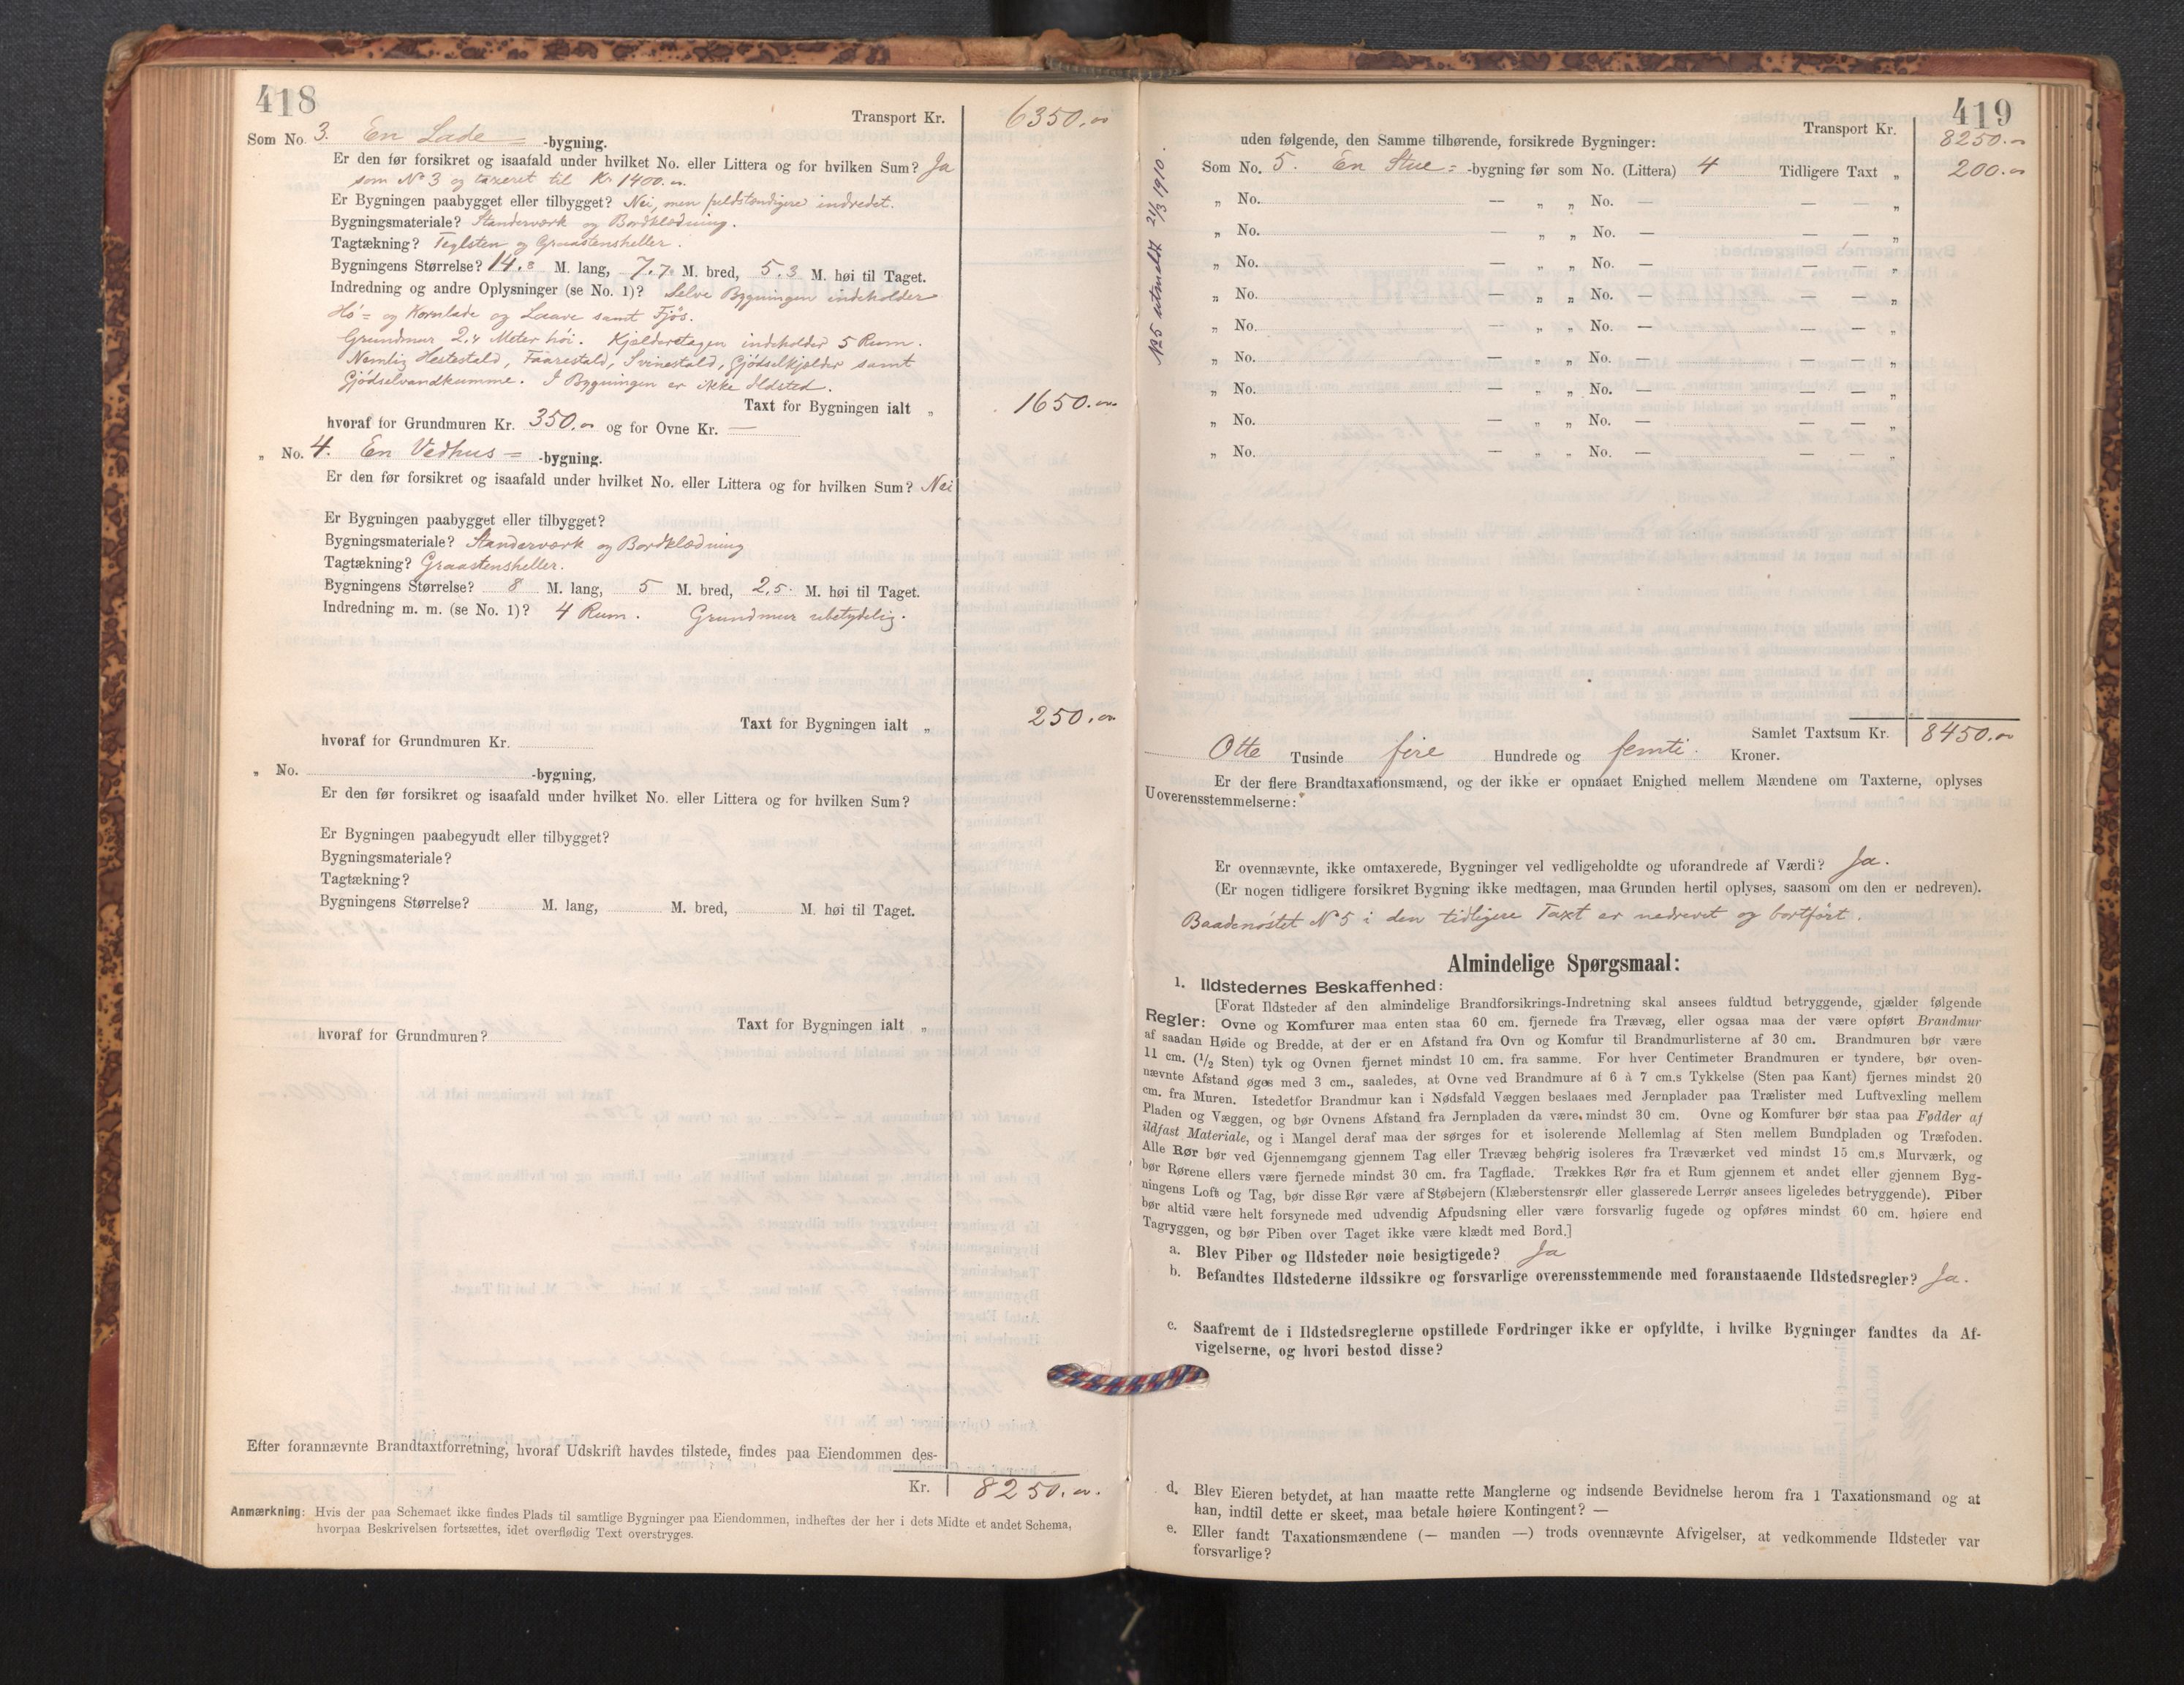 418
Transport Kr. 6350.00
Som No. 3. En Lade= -bygning.
Er den før forsikret og isaafald under hvilket No. eller Littera og for hvilken Sum? Ja
som No 3 og taxeret til Kr 1400.00
Er Bygningen paabygget eller tilbygget? Nei, men fuldstændigere indredet.
Bygningsmateriale? Standerværk og Bordklædning.
Tagtækning? Teglsten og Graastensheller.
Bygningens Størrelse? 14.8 M. lang, 7.7 M. bred, 5.3 M. høi til Taget.
Indredning og andre Oplysninger (se No. 1)? Selve Bygningen indeholder
Hö= og Kornlade og Laave samt Fjös.
Grundmur 2,4 Meter höi. Kjælderetagen indeholder 5 Rum.
Nemlig Hestestald, Faarestald, Svinestald, Gjödselkjælder samt
Gjödselvandkumme. I Bygningen er ikke Ildsted.
Taxt for Bygningen ialt „ 1650.00
hvoraf for Grundmuren Kr. 350.00 og for Ovne Kr. —
„ No. 4. En Vedhus= -bygning.
Er den før forsikret og isaafald under hvilket No. eller Littera og for hvilken Sum? Nei
Er Bygningen paabygget eller tilbygget?
Bygningsmateriale? Standerværk og Bordklædning
Tagtækning? Graastensheller.
Bygningens Størrelse? 8 M. lang, 5 M. bred, 2,5 M. høi til Taget.
Indredning m. m. (se No. 1)? 4 Rum. Grundmur ubetydelig.
Taxt for Bygningen ialt „ 250.00
hvoraf for Grundmuren Kr.
„ No. -bygning,
Er den før forsikret og isaafald under hvilket No. eller Littera og for hvilken Sum?
Er Bygningen paabegyndt eller tilbygget?
Bygningsmateriale?
Tagtækning?
Bygningens Størrelse? M. lang, M. bred, M. høi til Taget.
Taxt for Bygningen ialt „
hvoraf for Grundmuren?
Efter forannævnte Brandtaxtforretning, hvoraf Udskrift havdes tilstede, findes paa Eiendommen des-
Kr. 8250.00
Anmærkning: Hvis der paa Schemaet ikke findes Plads til samtlige Bygninger paa Eiendommen, indheftes der her i dets Midte et andet Schema,
hvorpaa Beskrivelsen fortsættes, idet overflødig Text overstryges.
419
Transport Kr. 8250.00
uden følgende, den Samme tilhørende, forsikrede Bygninger:
Som No. 5. En Stue= -bygning før som No. (Littera) 4 Tidligere Taxt „ 200.00
„ No. — „ „ No. — — — „
„ No. — „ „ No. — — — „
„ No. — „ „ No. — — — „
„ No. — „ „ No. — — — „
„ No. — „ „ No. — — — „
„ No. — „ „ No. — — — „
„ No. — „ „ No. — — — „
„ No. — „ „ No. — — — „
„ No. — „ „ No. — — — „
No 5 utmeldt 21/3 1910.
Samlet Taxtsum Kr. 8450.00
Otte Tusinde fire Hundrede og femti. Kroner.
Er der flere Brandtaxationsmænd, og der ikke er opnaaet Enighed mellem Mændene om Taxterne, oplyses
Uoverensstemmelserne:
Er ovennævnte, ikke omtaxerede, Bygninger vel vedligeholdte og uforandrede af Værdi? Ja.
(Er nogen tidligere forsikret Bygning ikke medtagen, maa Grunden hertil oplyses, saasom om den er nedreven).
Baadenöstet No 5 i den tidligere Taxt er nedrevet og bortfört.
Almindelige Spørgsmaal:
1. Ildstedernes Beskaffenhed:
[Forat Ildsteder af den almindelige Brandforsikrings-Indretning skal ansees fuldtud betryggende, gjælder følgende
Regler: Ovne og Komfurer maa enten staa 60 cm. fjernede fra Trævæg, eller ogsaa maa der være opført Brandmur
af saadan Høide og Bredde, at der er en Afstand fra Ovn og Komfur til Brandmurlisterne af 30 cm. Brandmuren bør være
11 cm. (1/2 Sten) tyk og Ovnen fjernet mindst 10 cm. fra samme. For hver Centimeter Brandmuren er tyndere, bør oven-
nævnte Afstand øges med 3 cm., saaledes, at Ovne ved Brandmure af 6 à 7 cm.s Tykkelse (Sten paa Kant) fjernes mindst 20
cm. fra Muren. Istedetfor Brandmur kan i Nødsfald Væggen beslaaes med Jernplader paa Trælister med Luftvexling mellem
Pladen og Væggen, og bør Ovnens Afstand fra Jernpladen da være mindst 30 cm. Ovne og Komfurer bør staa paa Fødder af
ildfast Materiale, og i Mangel deraf maa der sørges for et isolerende Mellemlag af Sten mellem Bundpladen og Træfoden.
Alle Rør bør ved Gjennemgang gjennem Tag eller Trævæg behørig isoleres fra Træværket ved mindst 15 cm.s Murværk, og
bør Rørene ellers være fjernede mindst 30 cm. fra Tagflade. Trækkes Rør fra et Rum gjennem et andet eller gjennem Byg-
ningens Loft og Tag, bør disse Rør være af Støbejern (Klæberstensrør eller glasserede Lerrør ansees ligeledes betryggende). Piber
bør altid være helt forsynede med udvendig Afpudsning eller være forsvarlig fugede og opføres mindst 60 cm. høiere end
Tagryggen, og bør Piben over Taget ikke være klædt med Bord.]
a. Blev Piber og Ildsteder nøie besigtigede? Ja
b. Befandtes Ildstederne ildssikre og forsvarlige overensstemmende med foranstaaende Ildstedsregler? Ja.
c. Saafremt de i Ildstedsreglerne opstillede Fordringer ikke er opfyldte, i hvilke Bygninger fandtes da Af-
vigelserne, og hvori bestod disse?
d. Blev Eieren betydet, at han maatte rette Manglerne og indsende Bevidnelse herom fra 1 Taxationsmand og at
han, indtil dette er skeet, maa betale høiere Kontingent? —
e. Eller fandt Taxationsmændene (— manden —) trods ovennævnte Afvigelser, at vedkommende Ildsteder var
forsvarlige?